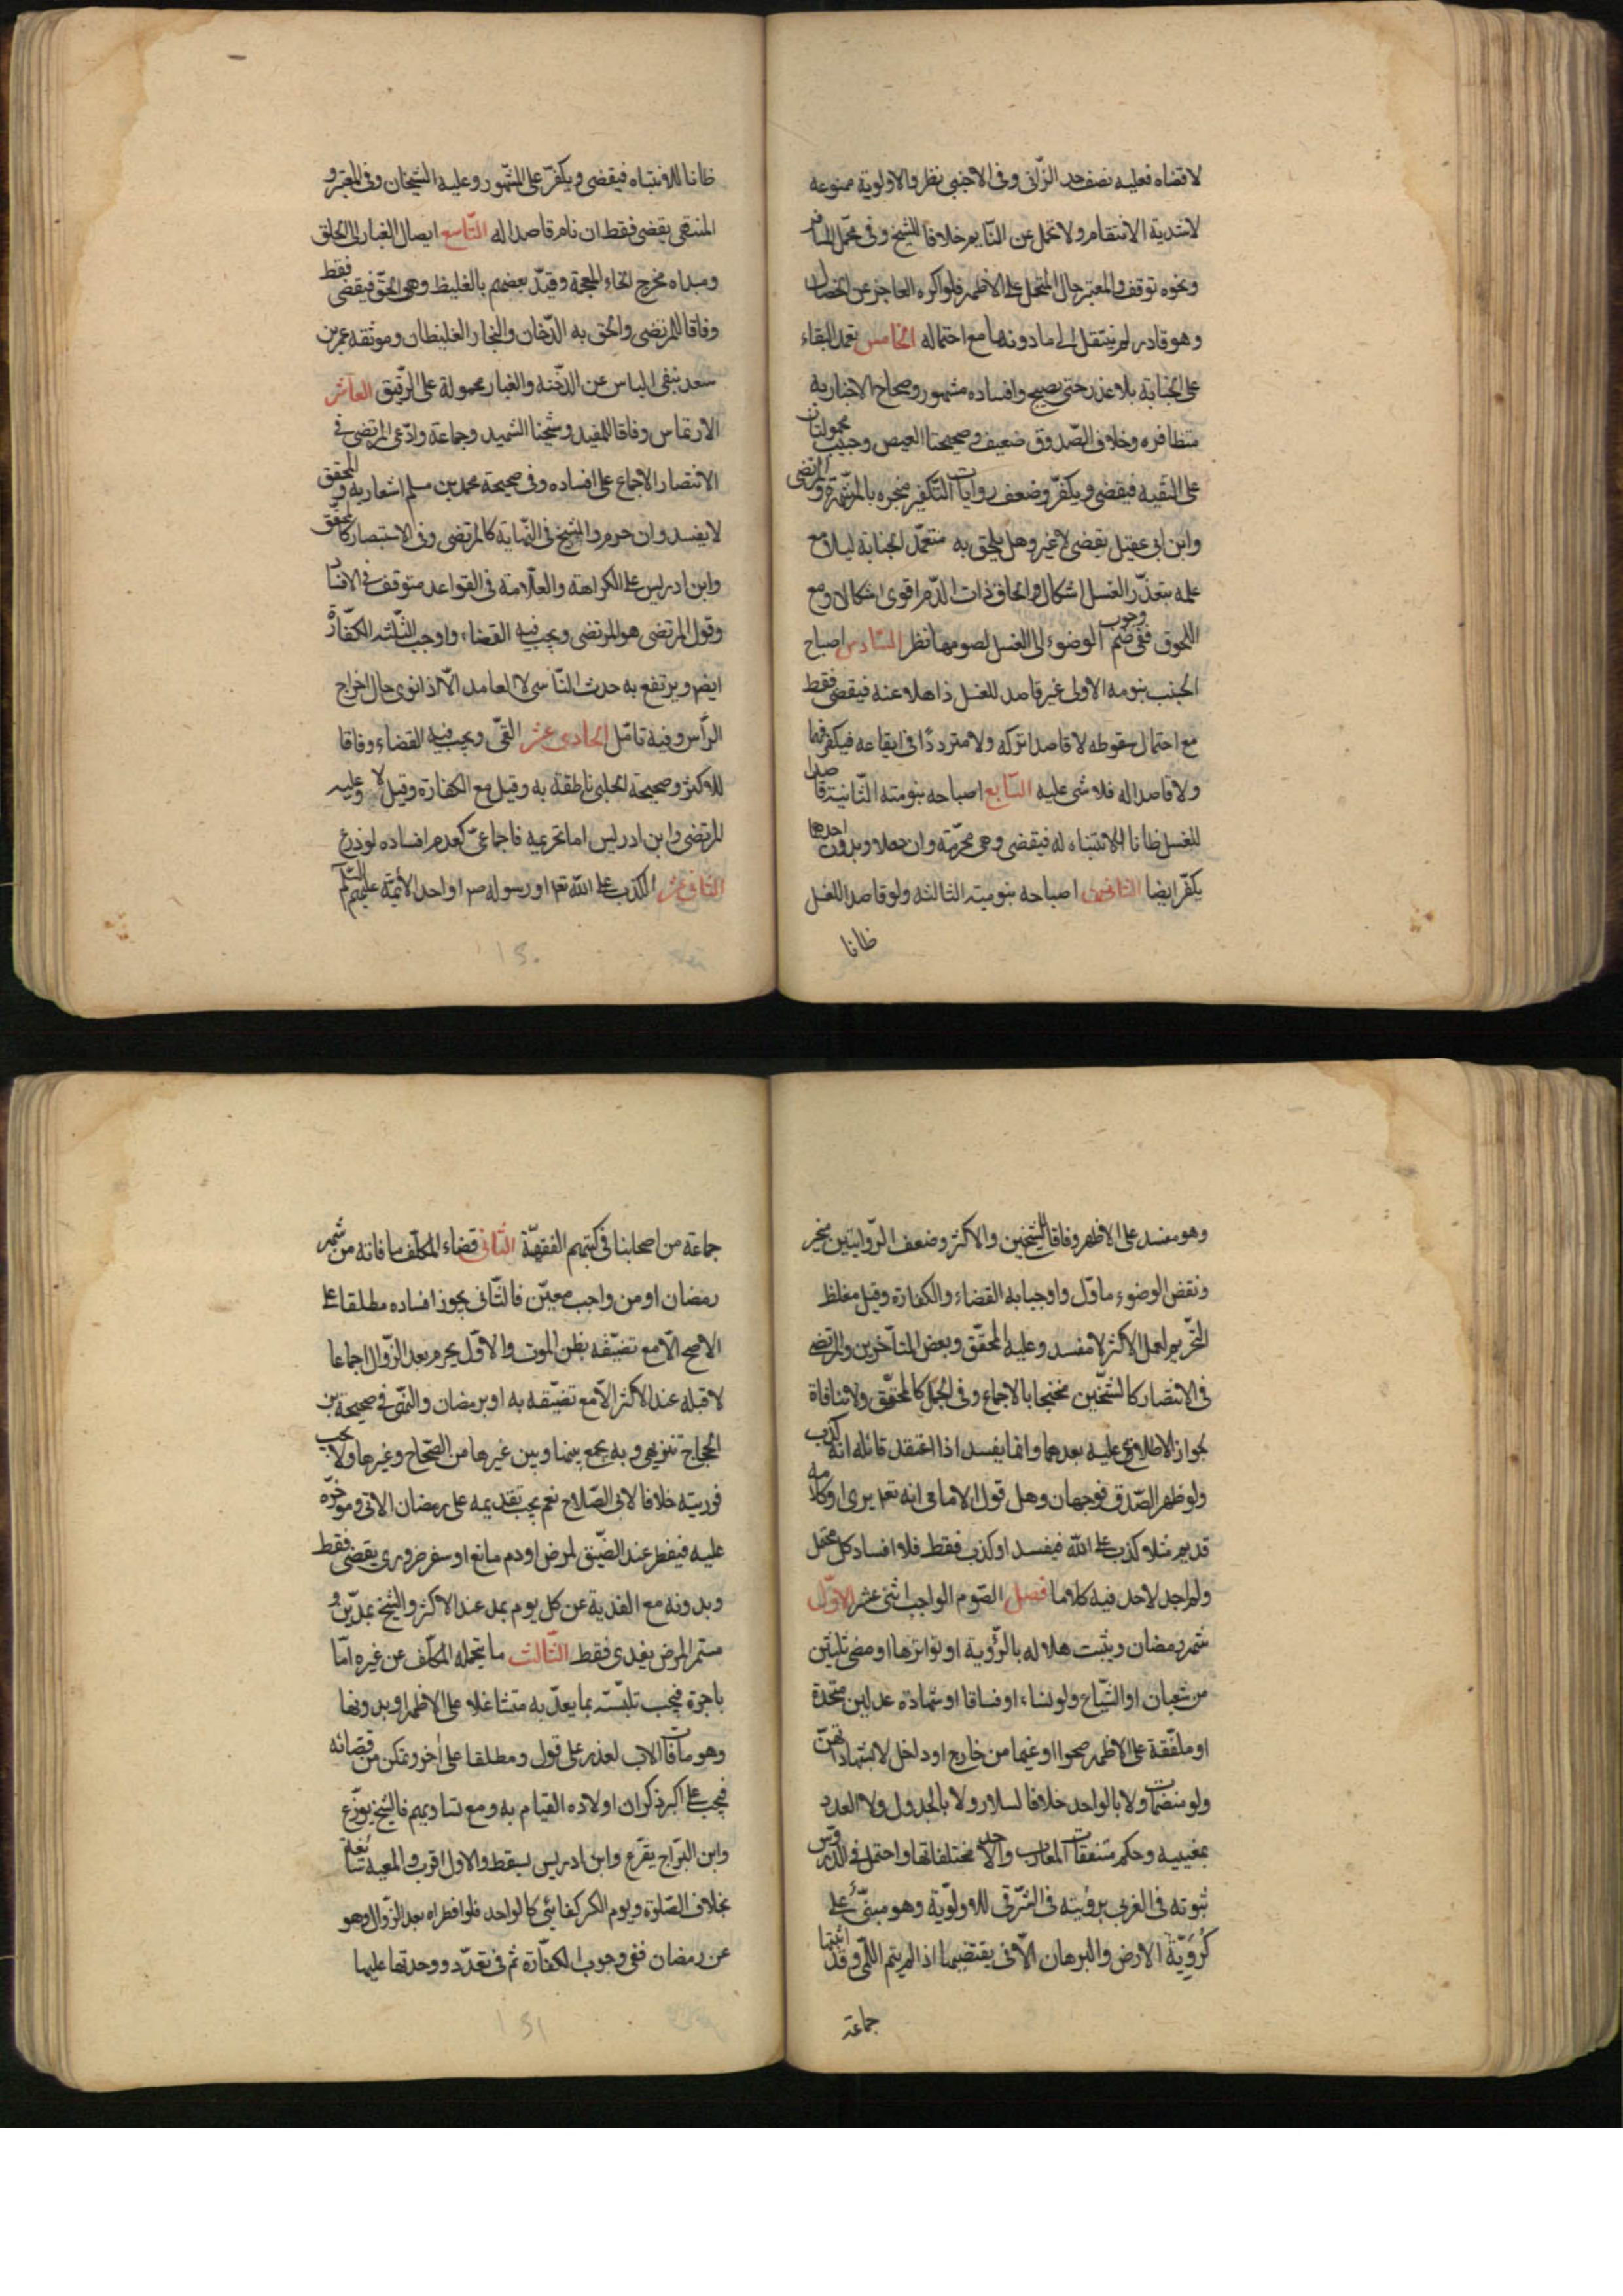 لاقتضاه فعليه نصف حد الزّانى وفى الاجنبى نظر والاولوية ممنوعه
لاشدية الانتقام ولا تحمل عن النّايم خلافا للشيخ وفى تحمّل المسافر
ونحوه توقف والمعتبر حال المتحمل على الاظهر فلو اكره العاجز عن الخصال
وهو قادر لم ينتقل الى ما دونها مع احتماله الخامس تعمد البقاء
على الجنابة بلا عذر حتى يصبح وافساده مشهور وصحاح الاخبار به
متظافره وخلاف الصّدوق ضعيف وصحيحتا العيص وحبيب محمولتان
على التقيه فيقضى ويكفّر وضعف روايات التكفير منجبره بالشهرة والمرتضى
وابن ابى عقيل يقضى لا غير وهل يلحق به متعمّد الجنابة ليلا مع
علمه بتعذّر الغسل اشكال والحاق ذات الدّم اقوى اشكالا ومع
اللحوق ففى وجوب ضم الوضوء الى الغسل لصومها نظر السّادس اصباح
الجنب بنومه الاولى غير قاصد للغسل ذاهلا عنه فيقضى فقط
مع احتمال سقوطه لا قاصدا تركه ولا مترددا فى ايقاعه فيكفر فيهما
ولا قاصدا له فلا شى عليه السّابع اصباحه بنومته الثّانية قاصدا
للغسل ظانا للانتباه له فيقضى وهى محرّمة وان حصلا وبدون احدهما
يكفّر ايضا الثامن اصباحه بنوميته الثالثه ولو قاصدا للغسل
ظانا
ظانا للانتباه فيقضى ويكفّر على المشهور وعليه الشيخان وفى المعتبر و
المنتهى يقضى فقط ان نام قاصدا له التّاسع ايصال الغبار الى الحلق
ومبداه مخرج الخاء المعجمة وقيّد بعضهم بالغليظ وهو الحق فيقضى فقط
وفاقا للمرتضى والحق به الدّخان والبخار الغليظان وموثقه عمر بن
سعد بنفى الباس عن الدّخنه والغبار محمولة على الرّقيق العاشر
الارتماس وفاقا للمفيد وشيخنا الشهيد وجماعة وادّعى المرتضى فى
الانتصار الاجماع على افساده وفى صحيحة محمد بن مسلم اشعار به والمحقق
لا يفسد وان حرم والشيخ فى النّهاية كالمرتضى وفى الاستبصار كالمحقّق
وابن ادريس على الكراهة والعلّامة فى القواعد متوقف فى الافساد
وقول المرتضى هو المرتضى ويجب فيه القضاء واوجب الثلثه الكفّارة
ايضا ويرتفع به حدث النّاسى لا العامد الّا اذا نوى حال اخراج
الرّأس وفيه تامّل الحادى عشر القىّ ويجب فيه القضاء وفاقا
للاكثر وصحيحة الحلبى ناطقة به وقيل مع الكفارة وقيل لا وعليه
المرتضى وابن ادريس اما تحريمه فاجماعىّ كعدم افساده لو ذرع
الثانى عشر الكذب على الله تعا او رسوله ص او احد الائمة عليهم السّلم
وهو مفسد على الاظهر وفاقا للشيخين والاكثر وضعف الرّوايتين منجبر
ونقض الوضوء ماوّل واوجبا به القضاء والكفارة وقيل مغلظ
التّحريم لعمل الاكثر لا مفسد وعليه المحقّق وبعض المتاخّرين والمرتضى
فى الانتصار كالشيخّين محتجا بالاجماع وفى الجمل كالمحقّق ولا منافاة
لجواز الاطلاع عليه بعدهما وانما يفسد اذا اعتقد قائله انه كذب
ولو ظهر الصّدق فوجهان وهل قول الامامى انه تعا يرى او كلامه
قديم مثلا كذب على الله فيفسد او كذب فقط فلا افساد كل محتمل
ولم اجد لاحد فيه كلاما فصل الصّوم الواجب اثنى عشر الاوّل
شهر رمضان ويثبت هلاله بالرّؤية او تواترها او مضى ثلثين
من شعبان او الشّياع ولو نساء او فساقا او شهادة عدلين متّحدة
او ملفّقة على الاظهر صحوا او غيما من خارج او داخل لا بشهادتهنّ
ولو منضمّات ولا بالواحد خلافا لسلار ولا بالجدول ولا العدد
بمغيبه وحكم متفقات المغارب واحد لا مختلفاتها واحتمل فى الدروس
ثبوته فى الغربى برؤيته فى الشّرقى للاولويّة وهو مبنىّ على
كرويّة الارض والبرهان الآنى يقتضيها اذا لم يتم اللمّى وقد اثبتها
جماعة
جماعة من اصحابنا فى كتبهم الفقهيّة الثّانى قضاء المكلّف ما فاته من شهر
رمضان او من واجب معيّن فالثّانى يجوز افساده مطلقا على
الاصح الّا مع تضيّقه بظن الموت والاوّل يحرم بعد الزّوال اجماعا
لا قبله عند الاكثر الّا مع تضيّقه به او برمضان والنّهى فى صحيحة بن
الحجاج تنزيهى وبه يجمع بينها وبين غيرها من الصّحاح وغيرها ولا يجب
فوريته خلافا لابى الصّلاح نعم يجب تقديمه على رمضان الاتى وموخّره
عليه فيفطر عند الضّيق لمرض او دم مانع او سفر ضرورى يقضى فقط
وبدونه مع الفدية عن كل يوم بمد عند الاكثر والشيخ بمدّين و
مستمر المرض يفدى فقط الثّالث ما يتحمله المكلّف عن غيره امّا
باجرة فيجب تلبّسه بما يعدّ به متشاغلا على الاظهر او بدونها
وهو ما فات الاب لعذر على قول ومطلقا على اخر وتمكن من قضائه
فيجب على اكبر ذكران اولاده القيام به ومع تساويهم فالشيخ يوزّع
وابن البرّاج يقرع وابن ادريس يسقط والاول اقرب والمعية
بخلاف الصّلوة ويوم الكسر كفائى كالواحد فلو افطراه بعد الزّوال وهو
عن رمضان ففى وجوب الكفّارة ثم فى تعدّد ووحدتها عليهما